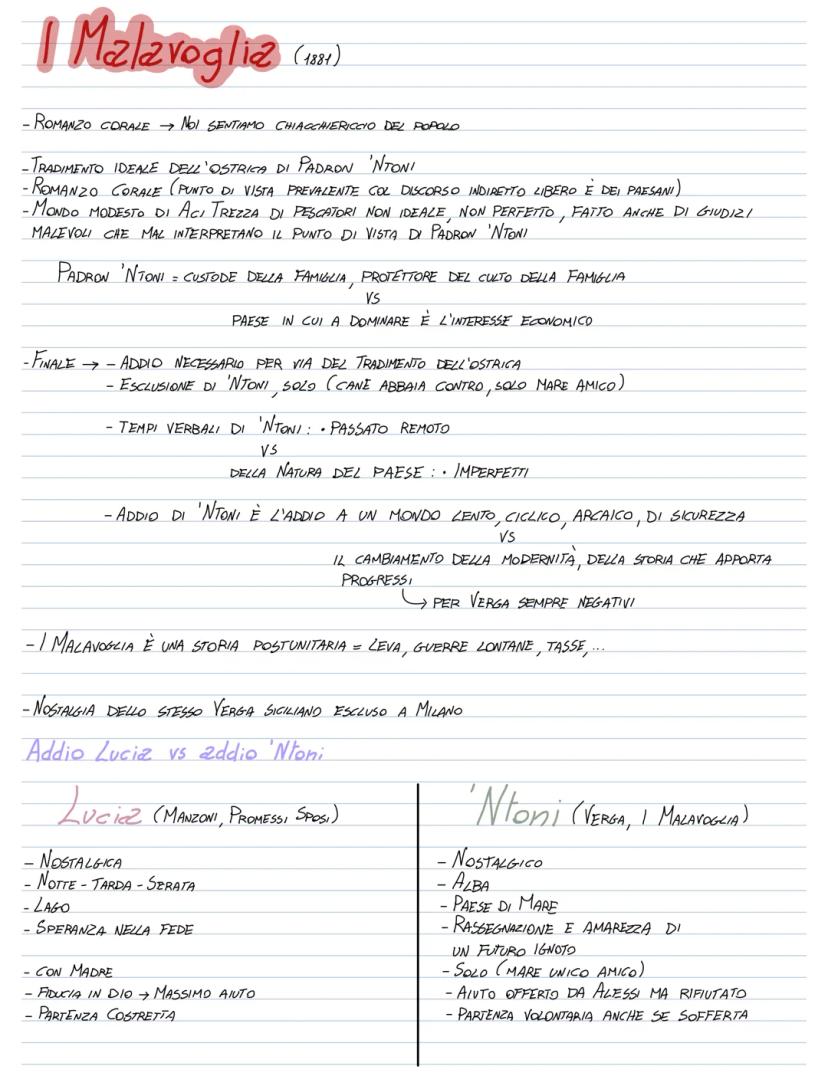 I Malavoglia (1881)
- ROMANZO CORALE → NOI SENTIAMO CHIACCHIERICCIO DEL POPOLO
- TRADIMENTO IDEALE DELL'OSTRICA DI PADRON 'NTONI
- ROMANZO CORALE (PUNTO DI VISTA PREVALENTE COL DISCORSO INDIRETTO LIBERO È DEI PAESANI)
- MONDO MODESTO DI ACI TREZZA DI PESCATORI NON IDEALE, NON PERFETTO, FATTO ANCHE DI GIUDIZI
MALEVOLI CHE MAL INTERPRETANO IL PUNTO DI VISTA DI PADRON 'NTONI
PADRON 'NTONI = CUSTODE DELLA FAMIGLIA, PROTETTORE DEL CULTO DELLA FAMIGLIA
VS
PAESE IN CUI A DOMINARE È L'INTERESSE ECONOMICO
- FINALE → - ADDIO NECESSARIO PER VIA DEL TRADIMENTO DELL'OSTRICA
- ESCLUSIONE DI 'NTONI, SOLO (CANE ABBAIA CONTRO, SOLO MARE AMICO)
- TEMPI VERBALI DI 'NTONI: • PASSATO REMOTO
VS
DELLA NATURA DEL PAESE: • IMPERFETTI
- ADDIO DI 'NTONI È L'ADDIO A UN MONDO LENTO, CICLICO, ARCAICO, DI SICUREZZA
VS
IL CAMBIAMENTO DELLA MODERNITÀ, DELLA STORIA CHE APPORTA
PROGRESSI
→ PER VERGA SEMPRE NEGATIVI
- I MALAVOGLIA È UNA STORIA POSTUNITARIA = LEVA, GUERRE LONTANE, TASSE, ...
- NOSTALGIA DELLO STESSO VERGA SICILIANO ESCLUSO A MILANO
Addio Lucia vs addio 'Ntoni
Lucia (MANZONI, PROMESSI SPOSI)
- NOSTALGICA
- NOTTE - TARDA - SERATA
- LAGO
- SPERANZA NELLA FEDE
- CON MADRE
- FIDUCIA IN DIO → MASSIMO AIUTO
- PARTENZA COSTRETTA
'Ntoni (VERGA, I MALAVOGLIA)
- NOSTALGICO
- ALBA
- PAESE DI MARE
- RASSEGNAZIONE E AMAREZZA DI
UN FUTURO IGNOTO
- SOLO (MARE UNICO AMICO)
- AIUTO OFFERTO DA ALESSI MA RIFIUTATO
- PARTENZA VOLONTARIA ANCHE SE SOFFERTA